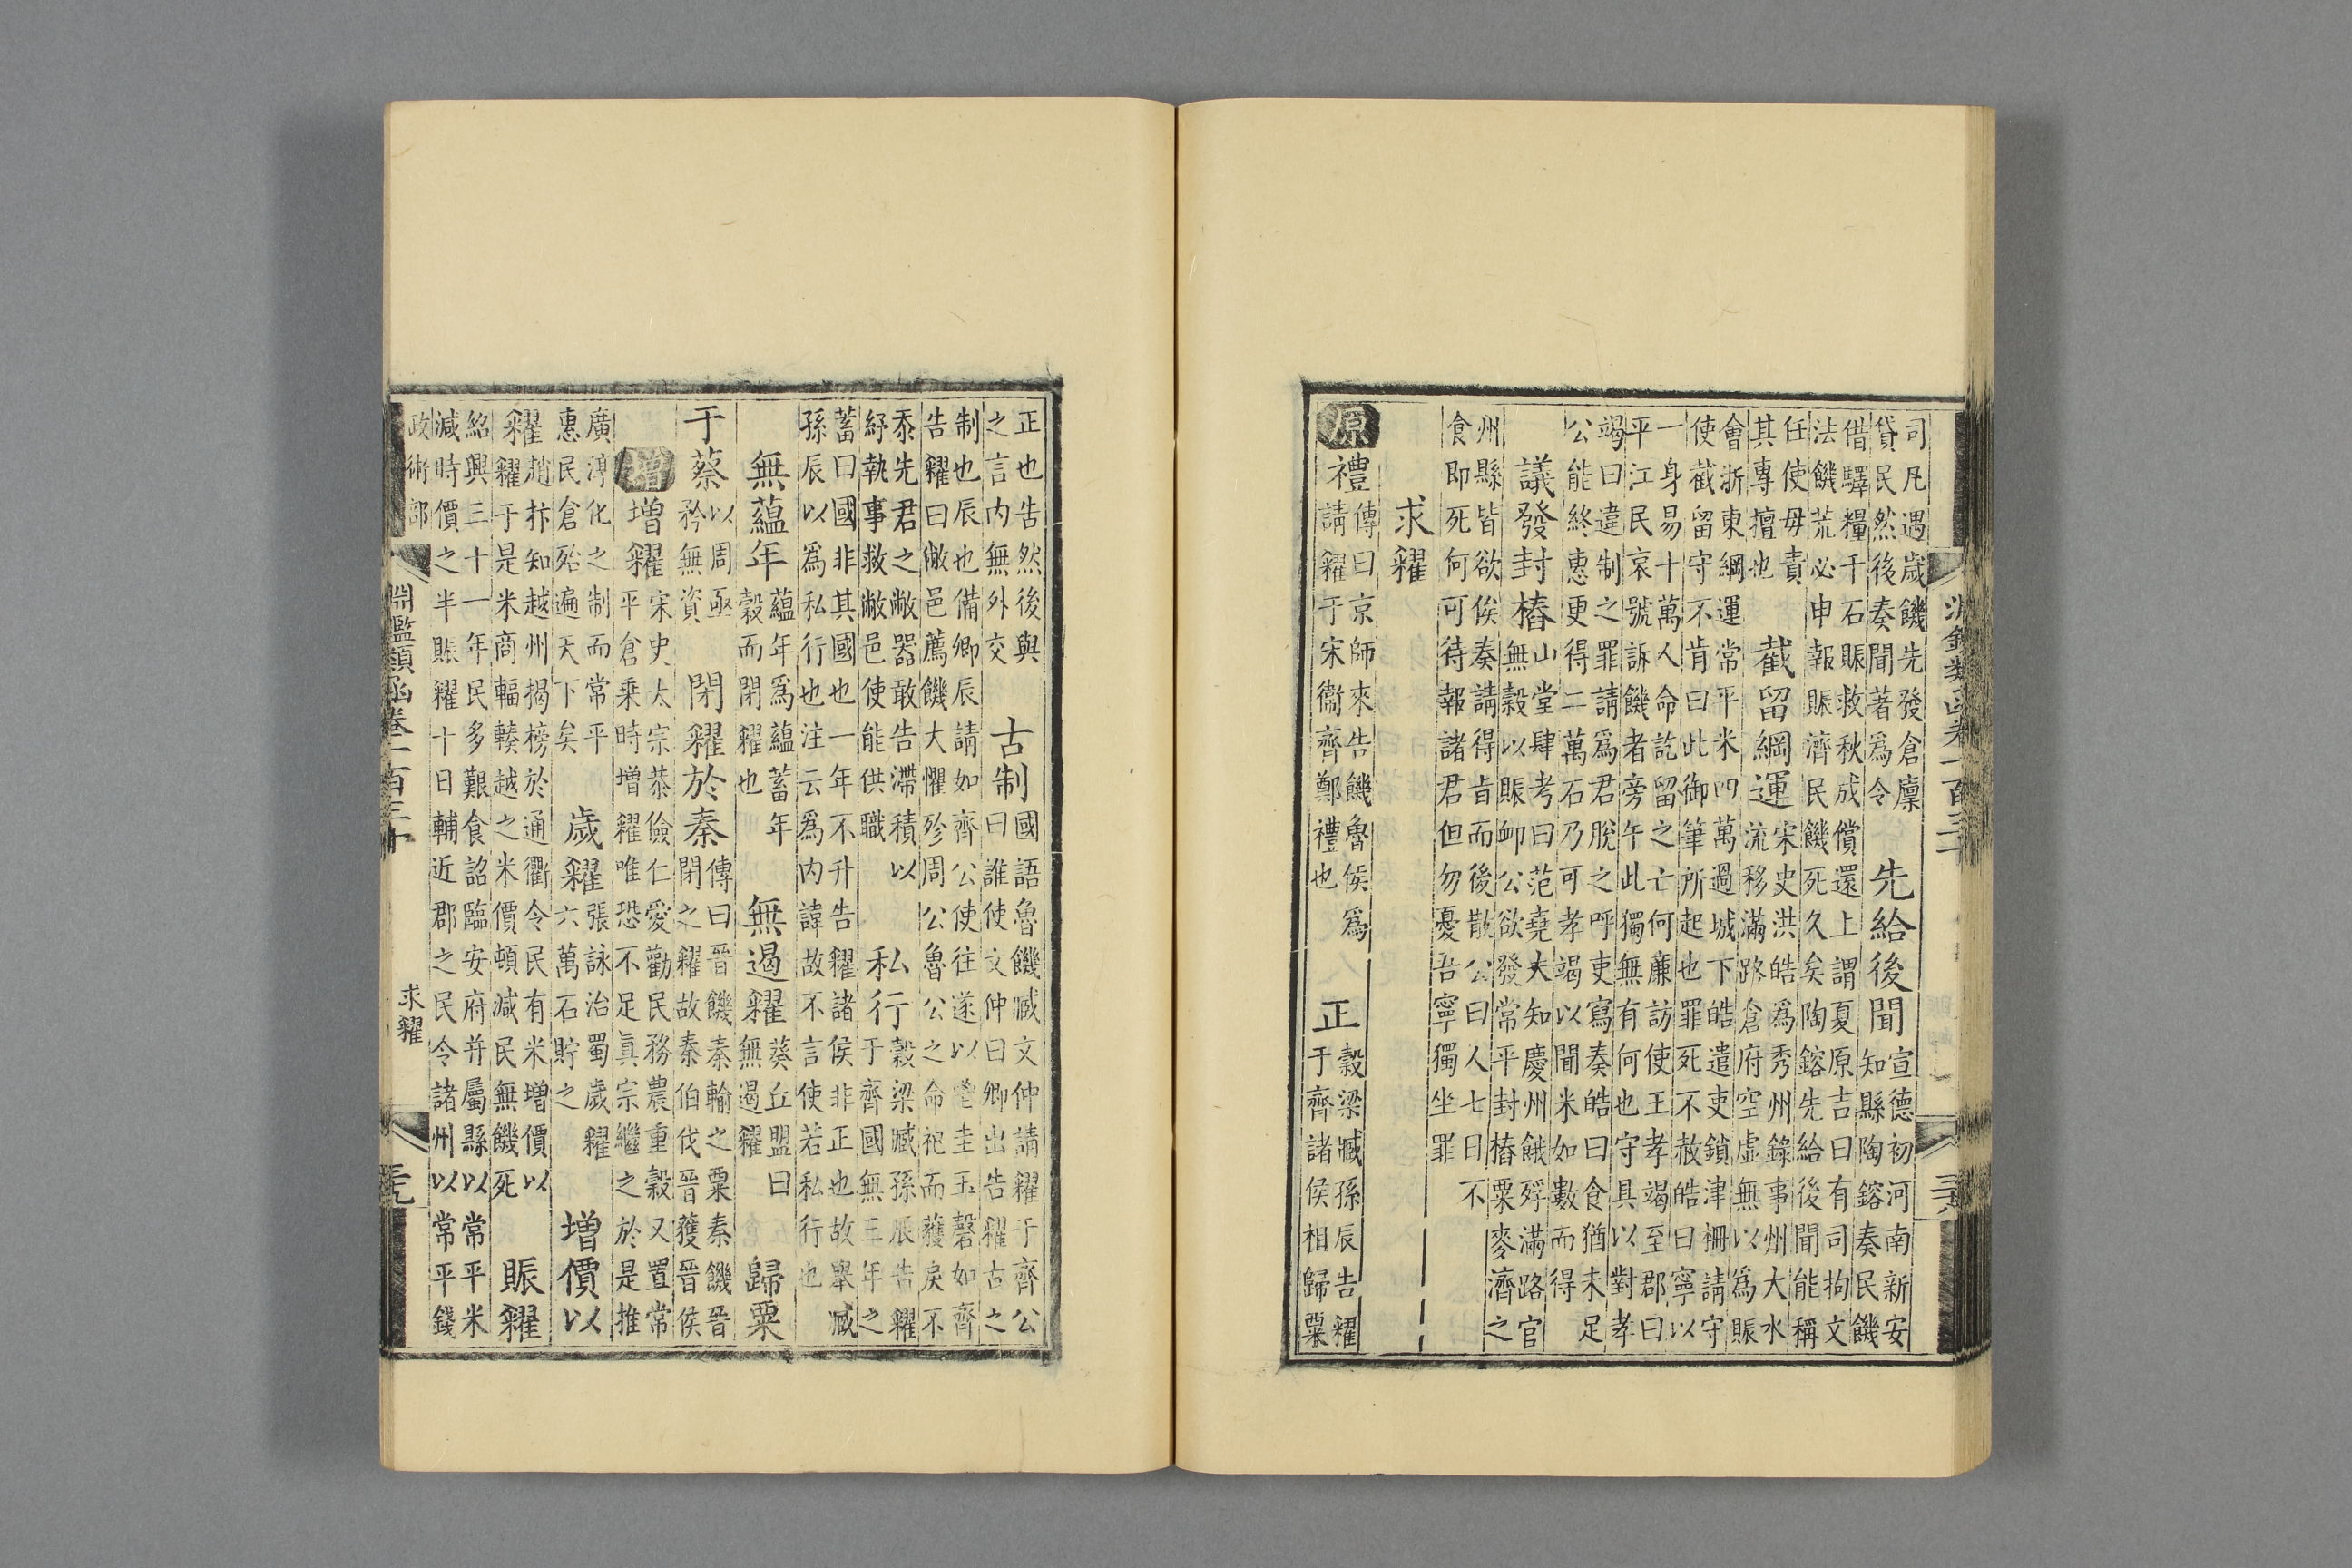 淵鑑類函卷一百三十
司凡遇歲饑先發倉廩
貸民然後奏聞著為令
先給後聞
宣德初河南新安
知縣陶鎔奏民饑
借驛糧千石賑救秋成償還上謂夏原吉曰有司拘文
法饑荒必申報賑濟民饑死久矣陶鎔先給後聞能稱
任使毋責
其專擅也
截留綱運
宋史洪皓為秀州錄事州大水
流移滿路倉府空虛無以為賑
會浙東綱運常平米四萬過城下皓遣吏鎖津柵請守
使截留守不肯曰此御筆所起也罪死不赦皓曰寧以
一身易十萬人命訖留之亡何廉訪使王孝竭至郡曰
平江民哀號訴饑者旁午此獨無有何也守具以對孝
竭曰違制之罪請為君脫之呼吏寫奏皓曰食猶未足
公能終惠更得二萬石乃可孝竭以聞米如數而得
議發封樁
山堂肆考曰范堯夫知慶州餓殍滿路官
無穀以賑卹公欲發常平封樁粟麥濟之
州縣皆欲俟奏請得旨而後散公曰人七日不
食即死何可待報諸君但勿憂吾寧獨坐罪
求糴
原
禮
傳曰京師來告饑魯侯為
請糴于宋衞齊鄭禮也
正
穀梁臧孫辰告糴
于齊諸侯相歸粟
正也告然後與
之言内無外交
古制
國語魯饑臧文仲請糴于齊公
曰誰使文仲曰卿出告糴古之
制也辰也備卿辰請如齊公使往遂以鬯圭玉磬如齊
告糴曰敝邑薦饑大懼殄周公魯公之命祀而獲戾不
黍先君之敝器敢告滯積以
紓執事救敝邑使能供職
私行
穀梁臧孫辰告糴
于齊國無三年之
蓄曰國非其國也一年不升告糴諸侯非正也故舉臧
孫辰以為私行也注云為内諱故不言使若私行也
無蘊年
蘊年為蘊蓄年
穀而閉糴也
無遏糴
葵丘盟曰
無遏糴
歸粟
于蔡
以周亟
矜無資
閉糴於秦
傳曰晉饑秦輸之粟秦饑晉
閉之糴故秦伯伐晉獲晉侯
增
增糴
宋史太宗恭儉仁愛勸民務農重穀又置常
平倉乘時增糴唯恐不足真宗繼之於是推
廣鴻化之制而常平
惠民倉殆遍天下矣
歲糴
張詠治蜀歲糴
六萬石貯之
增價以
糴
趙抃知越州揭榜於通衢令民有米增價以
糴于是米商輻輳越之米價頓減民無饑死
賑糴
紹興三十一年民多艱食詔臨安府并屬縣以常平米
減時價之半賑糴十日輔近郡之民令諸州以常平錢
政術部
淵鑑類函卷一百三十
求糴